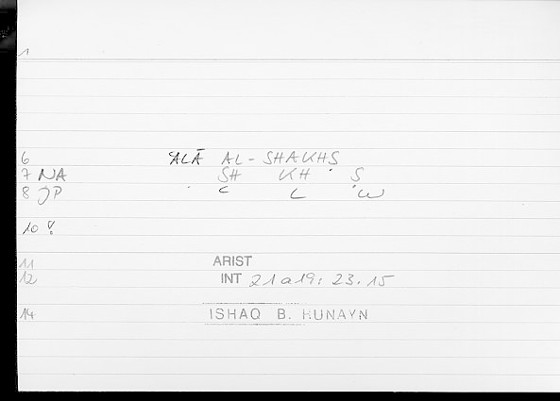 1
6 ʿALĀ AL-SHAKHṢ
7 NA SH KH Ṣ
8 JP
10
11 ARIST
12 INT 21a19: 23.15
14 ISHAQ B. HUNAYN